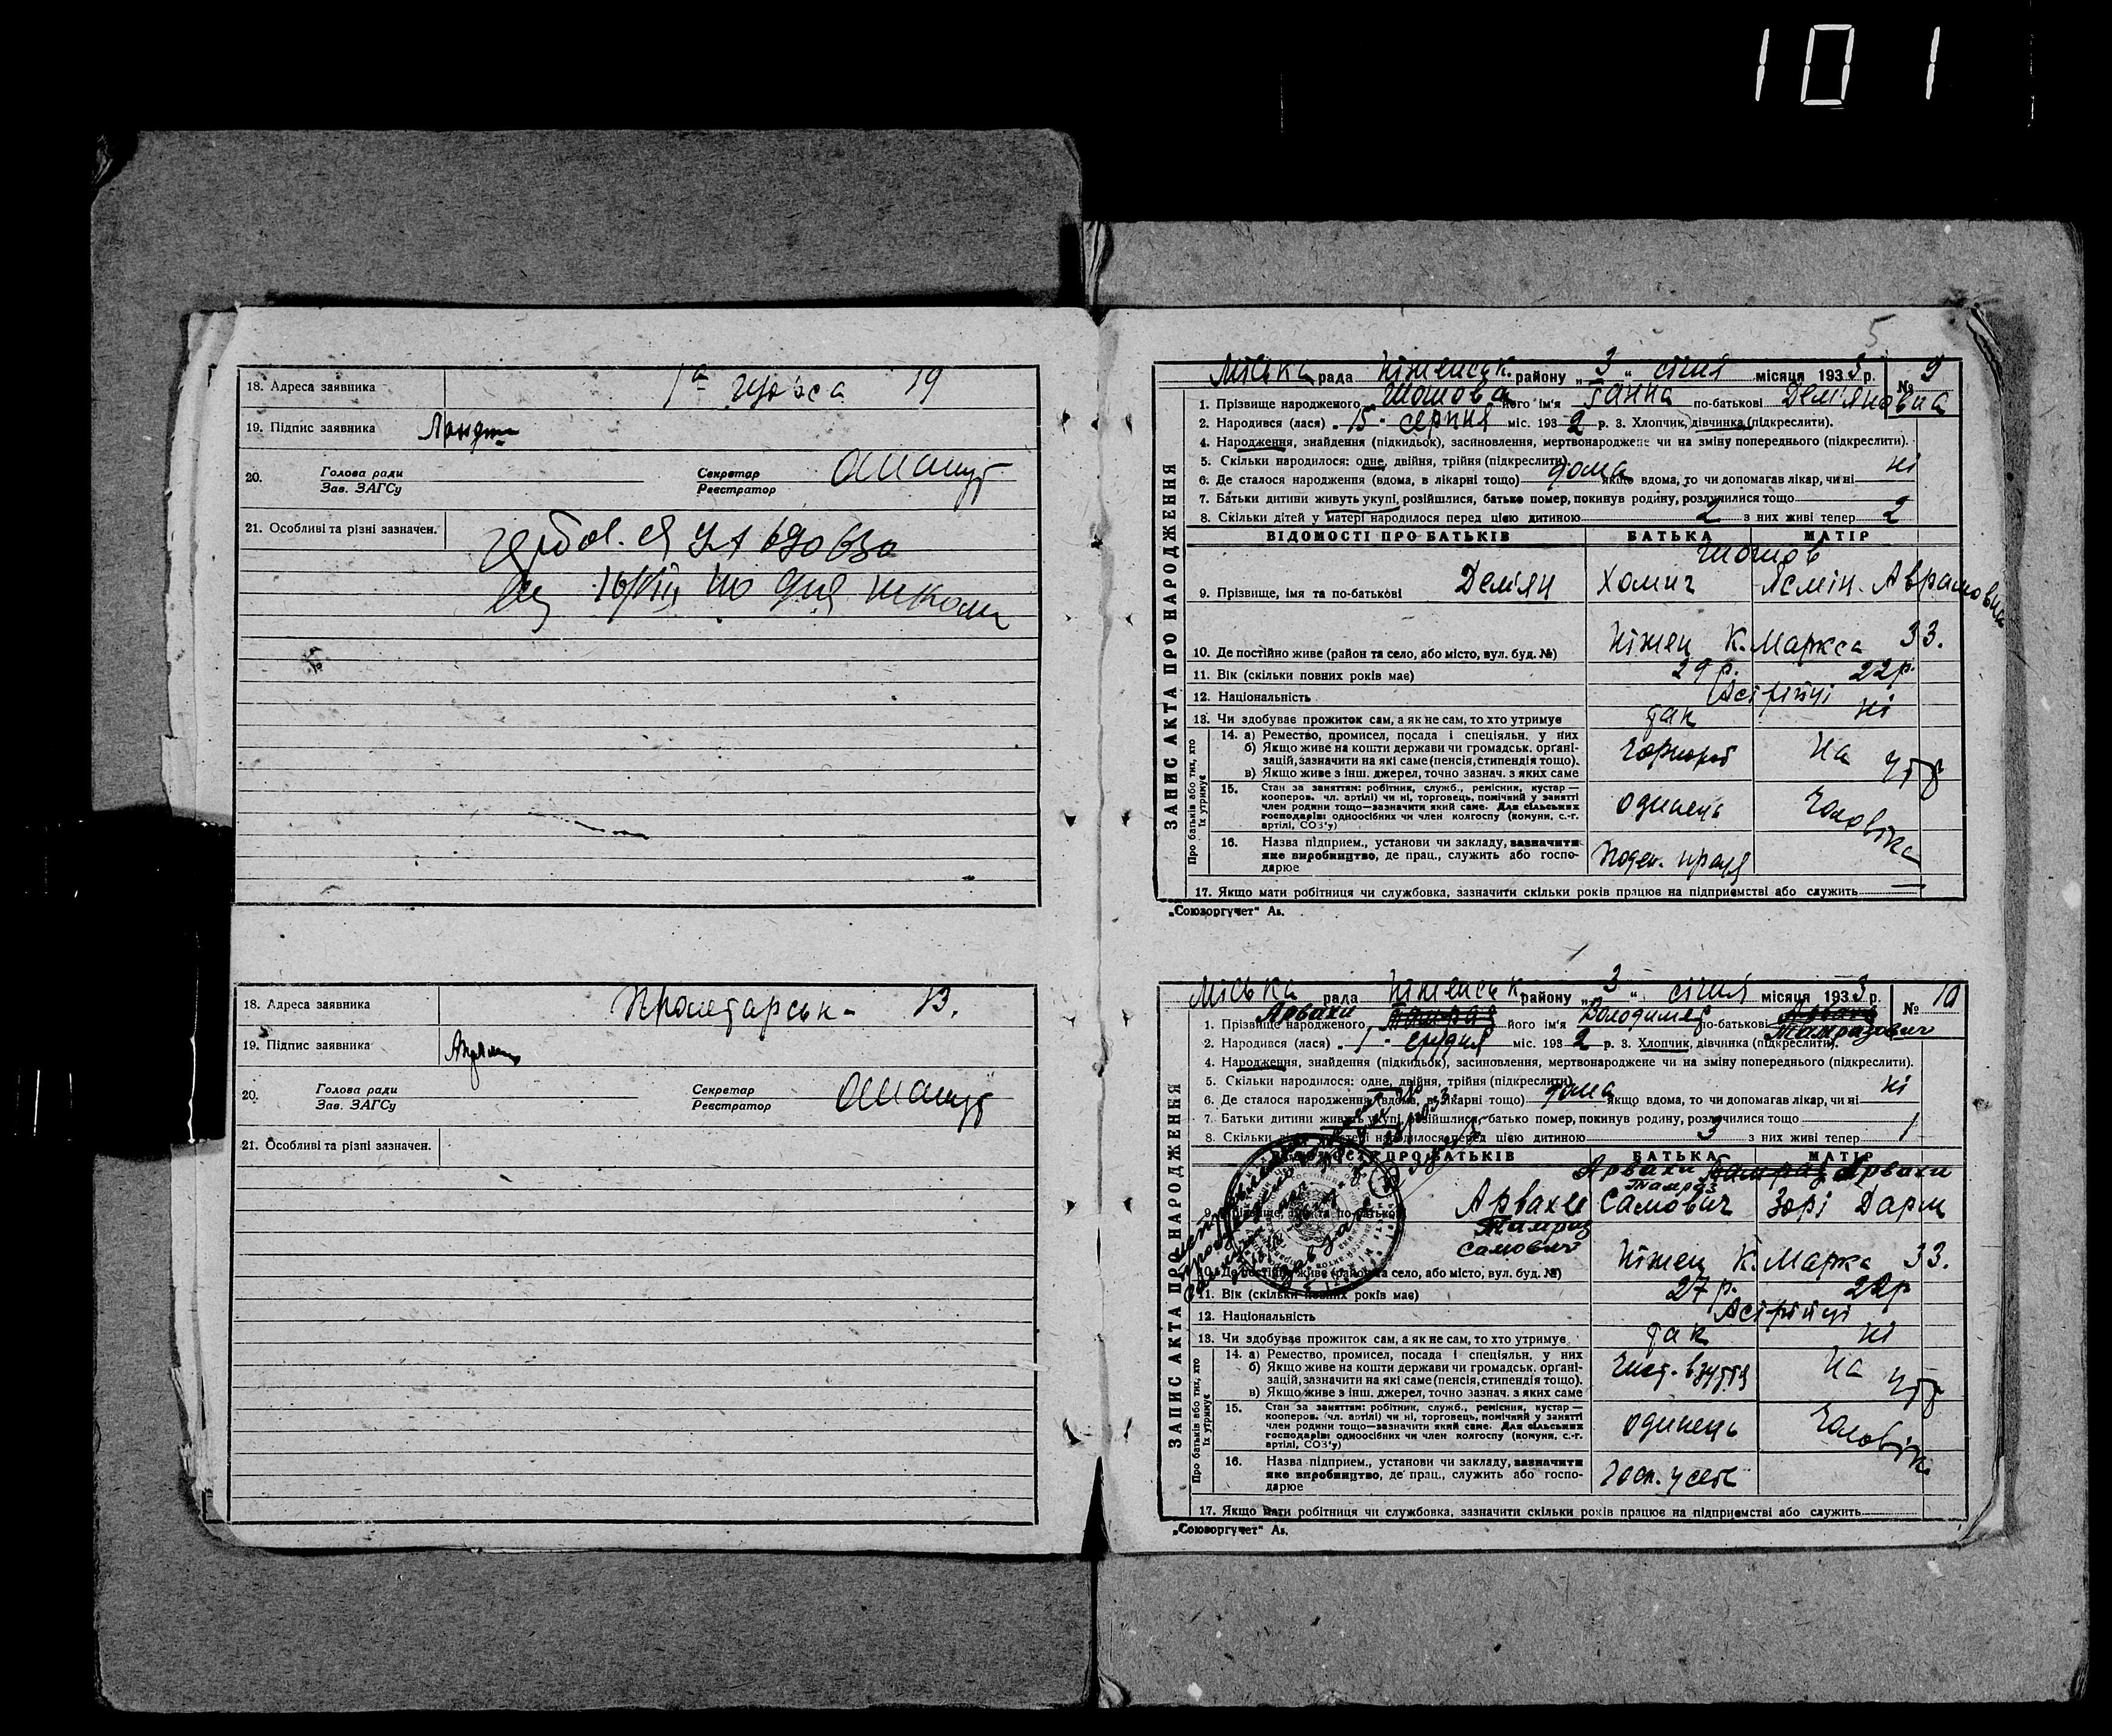 101
18. Адреса заявника 19
19. Підпис заявника
20. Голова ради Секретар
Зав. ЗАГСу Реєстратор
21. Особливі та різні зазначен.
18. Адреса заявника Пролетарськ- 13.
19. Підпис заявника
20. Голова ради Секретар
Зав. ЗАГСу Реєстратор
21. Особливі та різні зазначен.
5
Міська рада Ніженськ. району „3“ січня місяця 1933 р. № 9
1. Прізвище народженого Шошова його ім'я Ганна по-батькові Дем'яновна
2. Народився (лася) „15“ серпня міс. 1932 р. 3. Хлопчик, дівчинка (підкреслити).
4. Народження, знайдення (підкидьок), засиновлення, мертвонароджене чи на зміну попереднього (підкреслити).
5. Скільки народилося: одне, двійня, трійня (підкреслити)
6. Де сталося народження (вдома, в лікарні тощо) дома якщо вдома, то чи допомагав лікар, чи ні ні
7. Батьки дитини живуть укупі, розійшлися, батько помер, покинув родину, розлучилися тощо
8. Скільки дітей у матері народилося перед цією дитиною 2 з них живі тепер 2
ЗАПИС АКТА ПРО НАРОДЖЕННЯ
ВІДОМОСТІ ПРО БАТЬКІВ БАТЬКА МАТІР
Шошов
9. Прізвище, імя та по-батькові Дем'ян Хомич Ясмін. Аврамовна
10. Де постійно живе (район та село, або місто, вул. буд. №) Ніжен К. Маркса 33.
11. Вік (скільки повних років має) 29 р. 22 р.
12. Національність Асірійці
13. Чи здобуває прожиток сам, а як не сам, то хто утримує так ні
Про батьків або тих, хто їх утримує
14. а) Ремество, промисел, посада і спеціяльн. у них
б) Якщо живе на кошти держави чи громадськ. орґані-
зацій, зазначити на які саме (пенсія, стипендія тощо).
в) Якщо живе з інш. джерел, точно зазнач. з яких саме
чорнороб на утр
15. Стан за заняттям: робітник, служб., ремісник, кустар —
кооперов. чл. артілі) чи ні, торговець, помічний у занятті
член родини тощо—зазначити який саме. Для сільських
господарів: одноосібних чи член колгоспу (комуни, с.-г.
артілі, СОЗ'у)
одинець чоловіка
16. Назва підприєм., установи чи закладу, зазначити
яке виробництво, де прац., служить або госпо-
дарює
Поден. праця
17. Якщо мати робітниця чи службовка, зазначити скільки років працює на підприємстві або служить —
„Союзоргучет“ Ав.
Міська рада Ніженськ району „3“ січня місяця 1933 р. № 10
Арвахи
1. Прізвище народженого Тамраз його ім'я Володимер по-батькові Арвахи Тамразович
2. Народився (лася) „1“ грудня міс. 1932 р. 3. Хлопчик, дівчинка (підкреслити).
4. Народження, знайдення (підкидьок), засиновлення, мертвонароджене чи на зміну попереднього (підкреслити).
5. Скільки народилося: одне, двійня, трійня (підкреслити)
6. Де сталося народження (вдома, в лікарні тощо) дома якщо вдома, то чи допомагав лікар, чи ні ні
7. Батьки дитини живуть укупі, розійшлися, батько помер, покинув родину, розлучилися тощо
8. Скільки дітей у матері народилося перед цією дитиною 3 з них живі тепер 1
ЗАПИС АКТА ПРО НАРОДЖЕННЯ
ВІДОМОСТІ ПРО БАТЬКІВ БАТЬКА МАТІР
Арвахи Тамраз Арвахи
Тамраз
9. Прізвище, імя та по-батькові Арвахи Самович Зорі Дарш
Тамраз
Самович
10. Де постійно живе (район та село, або місто, вул. буд. №) Ніжен К. Марка 33.
11. Вік (скільки повних років має) 27 р. 22 р
12. Національність Асірійці
13. Чи здобуває прожиток сам, а як не сам, то хто утримує так ні
Про батьків або тих, хто їх утримує
14. а) Ремество, промисел, посада і спеціяльн. у них
б) Якщо живе на кошти держави чи громадськ. орґані-
зацій, зазначити на які саме (пенсія, стипендія тощо).
в) Якщо живе з інш. джерел, точно зазнач. з яких саме
чист. взуття на утр
15. Стан за заняттям: робітник, служб., ремісник, кустар —
кооперов. чл. артілі) чи ні, торговець, помічний у занятті
член родини тощо—зазначити який саме. Для сільських
господарів: одноосібних чи член колгоспу (комуни, с.-г.
артілі, СОЗ'у)
одинець чоловік
16. Назва підприєм., установи чи закладу, зазначити
яке виробництво, де прац., служить або госпо-
дарює
17. Якщо мати робітниця чи службовка, зазначити скільки років працює на підприємстві або служить
„Союзоргучет“ Ав.